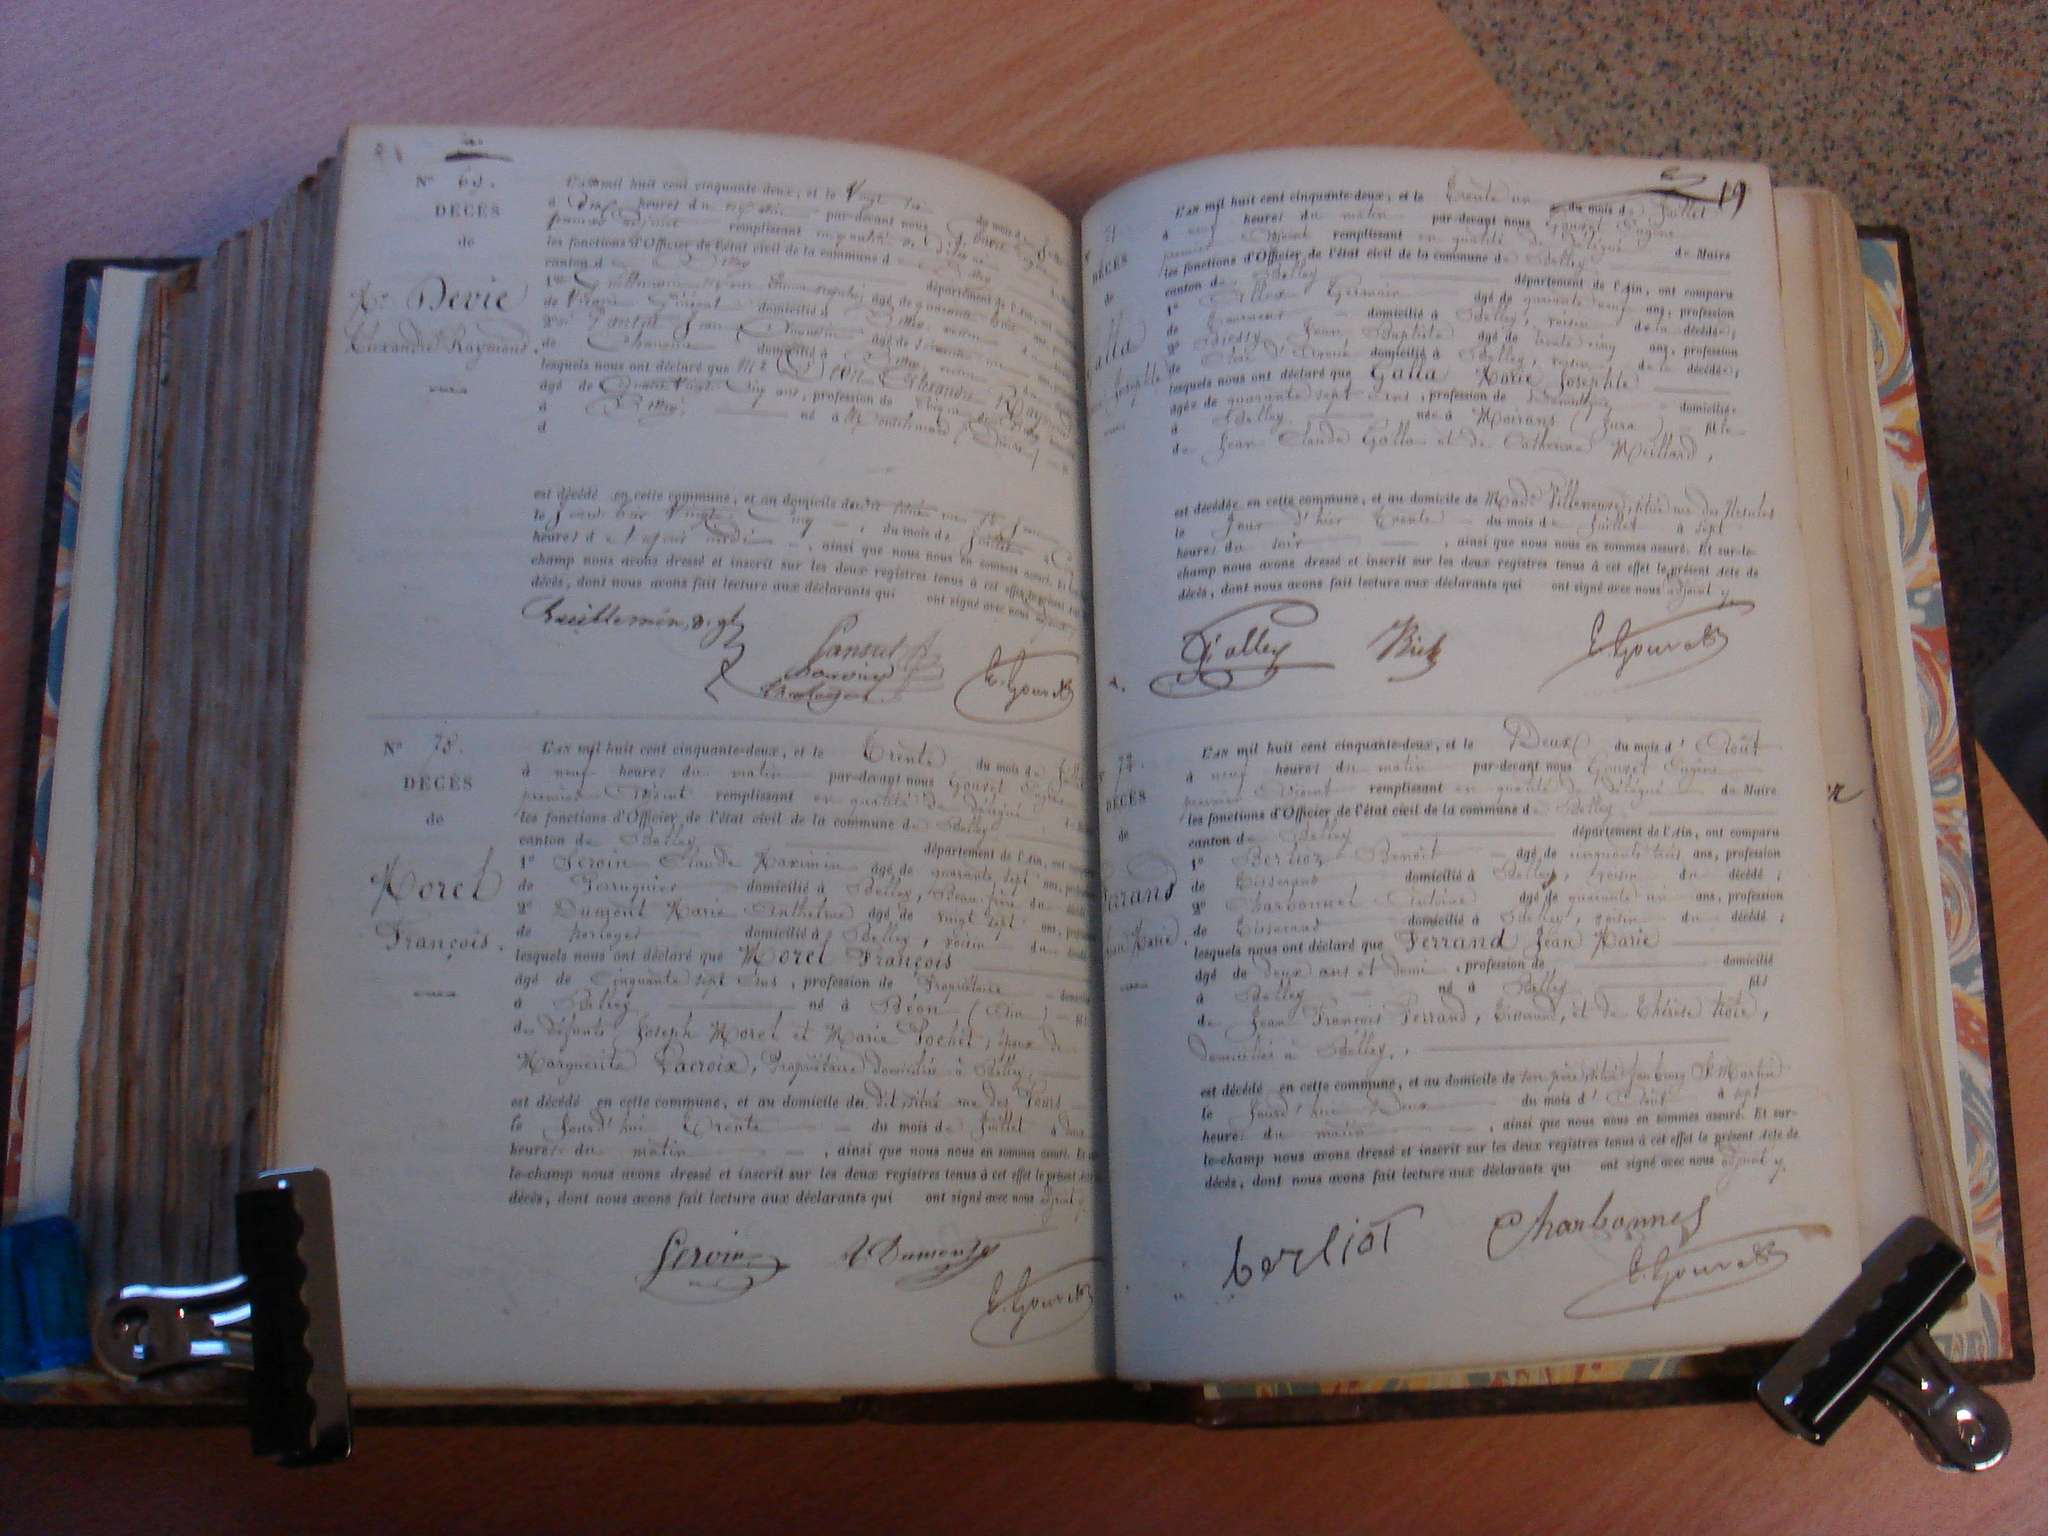 N° 69.
DÉCÈS
de
Mgr Devie
Alexandre Raymond.
L'an mil huit cent cinquante-deux, et le Vingt six du mois de
à dix heures du matin par-devant nous Gouvet
premier adjoint remplissant en qualité de délégué
les fonctions d'Officier de l'état civil de la commune d
canton d
département de l'Ain, ont
1° Guillemin agé de quarante
de Vicaire Général domicilié à Belley
2° Pansut Jean agé de
de Chanoine domicilié à Belley
lesquels nous ont déclaré que Mgr Devie Alexandre Raymond
agé de quatre vingt cinq ans, profession de Evêque de Belley
à Belley né à Montélimard (Drôme)
d
est décédé en cette commune, et au domicile
le jour d'hier Vingt cinq du mois de juillet à
heures d , ainsi que nous nous en sommes assuré. Et
champ nous avons dressé et inscrit sur les deux registres tenus à cet effet le présent
décès, dont nous avons fait lecture aux déclarants qui ont signé avec nous
Guillemin, v. gl
Pansut
chanoine
E. Gouvet
N° 70.
DÉCÈS
de
Morel
François.
L'an mil huit cent cinquante-deux, et le Trente du mois de
à neuf heures du matin par-devant nous Gouvet Eugène
premier adjoint remplissant en qualité de délégué
les fonctions d'Officier de l'état civil de la commune de Belley
canton de Belley département de l'Ain, ont
1° Seroin Claude Maximin agé de quarante sept ans,
de Perruquier domicilié à Belley, Beau-frère du
2° Dumont Marie Anthelme agé de vingt sept ans,
de horloger domicilié à Belley, voisin du
lesquels nous ont déclaré que Morel François
agé de Cinquante sept ans, profession de Propriétaire
à Belley né à Béon (Ain)
des défunts Joseph Morel et Marie Pochet, époux de
Marguerite Lacroix, Propriétaire domiciliée à Belley,
est décédé en cette commune, et au domicile du dit situé rue des Cours
le Jourd'hui Trente du mois de Juillet à
heures du matin , ainsi que nous nous en sommes assuré. Et
le-champ nous avons dressé et inscrit sur les deux registres tenus à cet effet le présent
décès, dont nous avons fait lecture aux déclarants qui ont signé avec nous adjoint
Seroin
Dumont
E. Gouvet
19
71
DÉCÈS
de
Galla
Josephte
L'an mil huit cent cinquante-deux, et le Trente un du mois de Juillet
à neuf heures du matin par-devant nous Gouvet Eugène
premier adjoint remplissant en qualité de délégué de Maire
les fonctions d'Officier de l'état civil de la commune de Belley
canton de Belley département de l'Ain, ont comparu
1° Germain agé de quarante neuf ans, profession
de domicilié à Belley, voisin de la décédée;
2° Jean Baptiste agé de trente cinq ans, profession
de domicilié à Belley, voisin de la décédée;
lesquels nous ont déclaré que Galla Marie Josephte
agée de quarante sept ans, profession de domiciliée
à Belley née à Moirans (Jura) fille
de Jean Claude Galla et de Catherine Maillard,
est décédée en cette commune, et au domicile de Made Villeneuve, situé rue des
le Jour d'hier Trente du mois de Juillet à sept
heures du soir , ainsi que nous nous en sommes assuré. Et sur-le-
champ nous avons dressé et inscrit sur les deux registres tenus à cet effet le présent Acte de
décès, dont nous avons fait lecture aux déclarants qui ont signé avec nous adjoint
E. Gouvet
72.
DÉCÈS
de
Ferrand
Jean Marie.
L'an mil huit cent cinquante-deux, et le Deux du mois d' Août
à neuf heures du matin par-devant nous Gouvet Eugène
premier adjoint remplissant en qualité de délégué de Maire
les fonctions d'Officier de l'état civil de la commune de Belley
canton de Belley département de l'Ain, ont comparu
1° Berlioz Benoit agé de cinquante trois ans, profession
de Tisserand domicilié à Belley, voisin du décédé;
2° Charbonnel Antoine agé de quarante un ans, profession
de Tisserand domicilié à Belley, voisin du décédé;
lesquels nous ont déclaré que Ferrand Jean Marie
agé de deux ans et demi, profession de domicilié
à Belley né à Belley fils
de Jean François Ferrand, Tisserand, et de Thérèse
domiciliés à Belley,
est décédé en cette commune, et au domicile de son père, situé faubourg St Martin
le Jourd'hui Deux du mois d' Août à sept
heures du matin , ainsi que nous nous en sommes assuré. Et sur-
le-champ nous avons dressé et inscrit sur les deux registres tenus à cet effet le présent Acte de
décès, dont nous avons fait lecture aux déclarants qui ont signé avec nous adjoint
berliot
Charbonnel
E. Gouvet